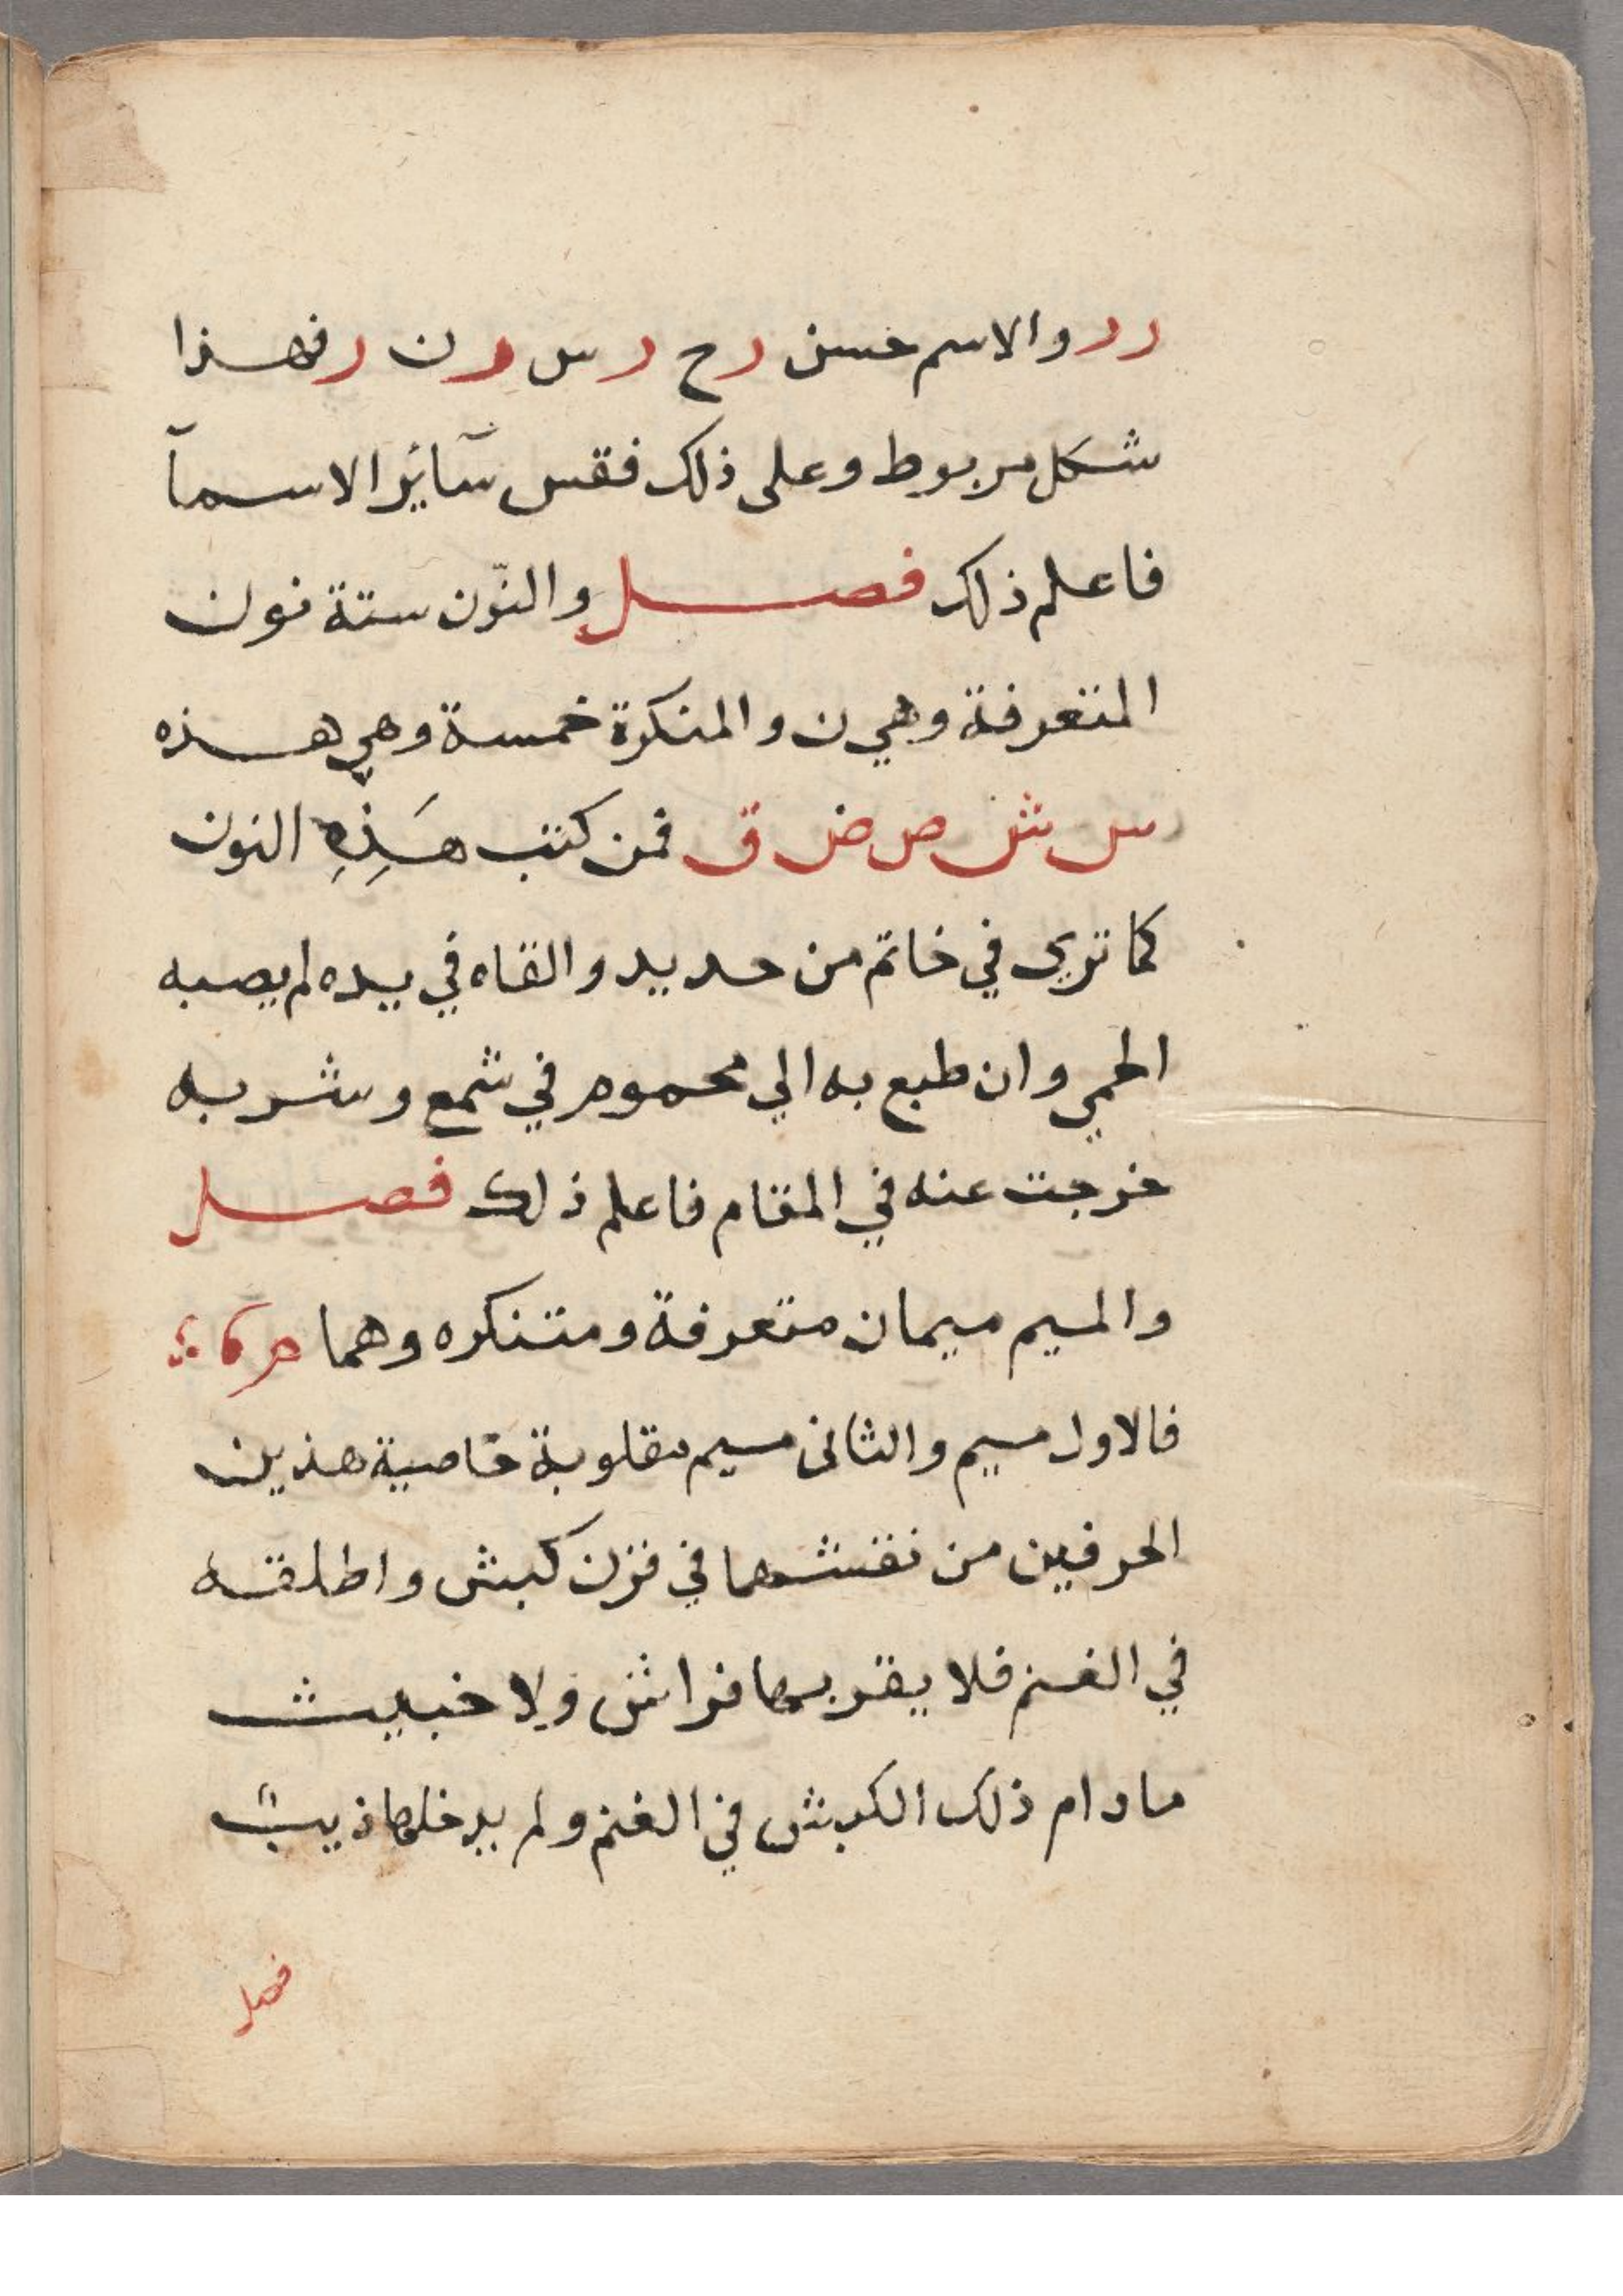 ر د والاسم حسن ر ح ر س ر ن ر فهذا
شكل مربوط وعلى ذلك فقس سآئر الاسمآ
فاعلم ذلك فصل والنّون ستة نون
المتعرفة وهي ن والمنكرة خمسة وهي هذه
س ش ص ض ق فمن كتب هَذِهِ النون
كما ترى في خاتم من حديد والقاه في يده لم يصبه
الحمي وان طبع به الي محموم في شمع وشربه
خرجت عنه في المقام فاعلم ذلك فصل
والميم ميمان متعرفة ومتنكره وهما م
فالاول ميم والثانى ميم مقلوبة خاصية هذين
الحرفين من نقشهما في قرن كبش واطلقه
في الغنم فلا يقربها فراش ولا خبيث
ما دام ذلك الكبش في الغنم ولم يدخلها ذيب
فصل